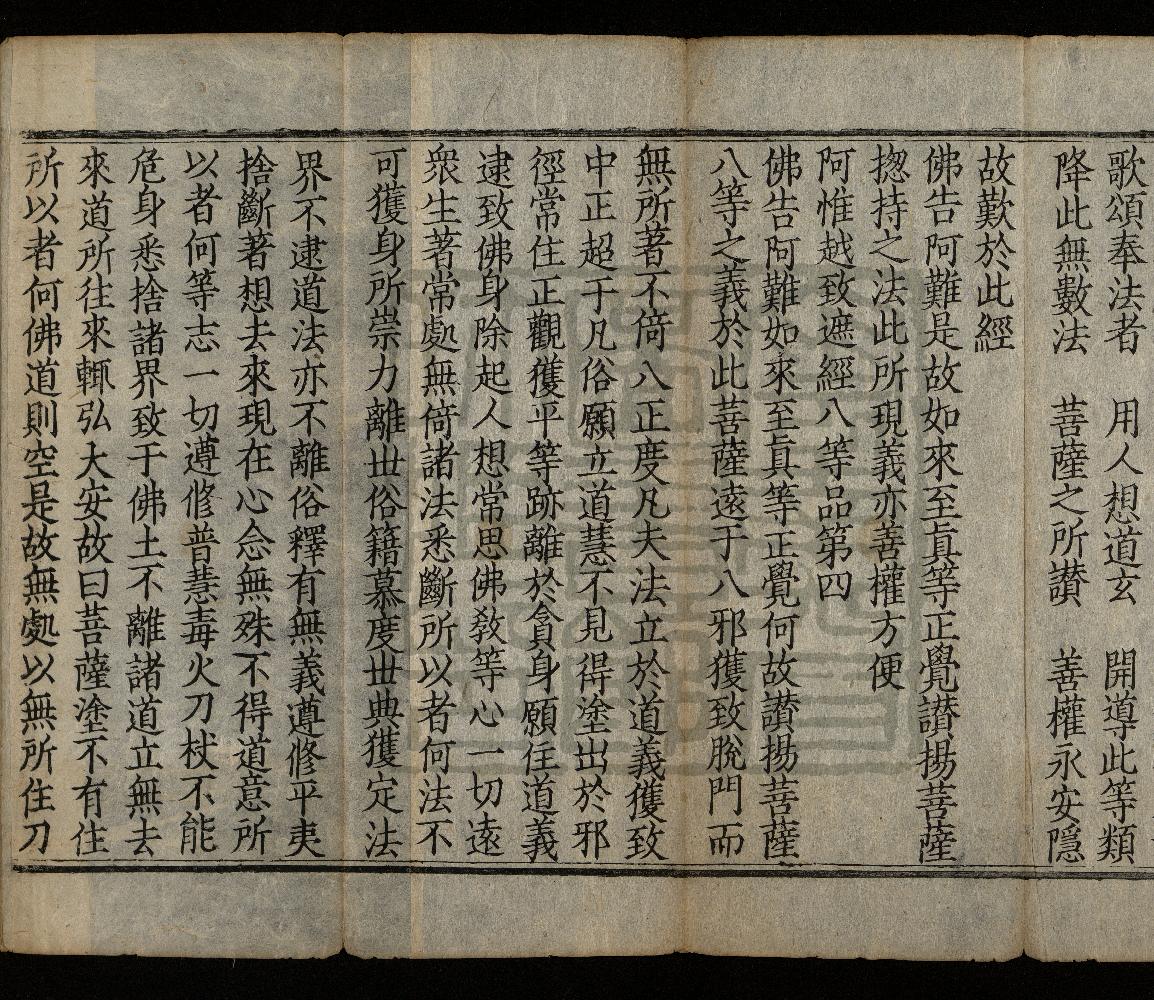 歌頌奉法者　用人想道玄　開導此等類
降此無數法　菩薩之所讃　善權永安隱
故歎於此經
佛告阿難是故如來至真等正覺讃揚菩薩
揔持之法此所現義亦善權方便
阿惟越致遮經八等品第四
佛告阿難如來至真等正覺何故讃揚菩薩
八等之義於此菩薩遠于八邪獲致脫門而
無所著不倚八正度凡夫法立於道義獲致
中正超于凡俗願立道慧不見得塗出於邪
徑常住正觀獲平等跡離於貪身願住道義
逮致佛身除起人想常思佛教等心一切遠
衆生著常處無倚諸法悉斷所以者何法不
可獲身所崇力離丗俗籍慕度丗典獲定法
界不逮道法亦不離俗釋有無義遵修平夷
捨斷著想去來現在心念無殊不得道意所
以者何等志一切遵修普慧毒火刀杖不能
危身悉捨諸界致于佛土不離諸道立無去
來道所往來輒弘大安故曰菩薩塗不有住
所以者何佛道則空是故無處以無所住刀